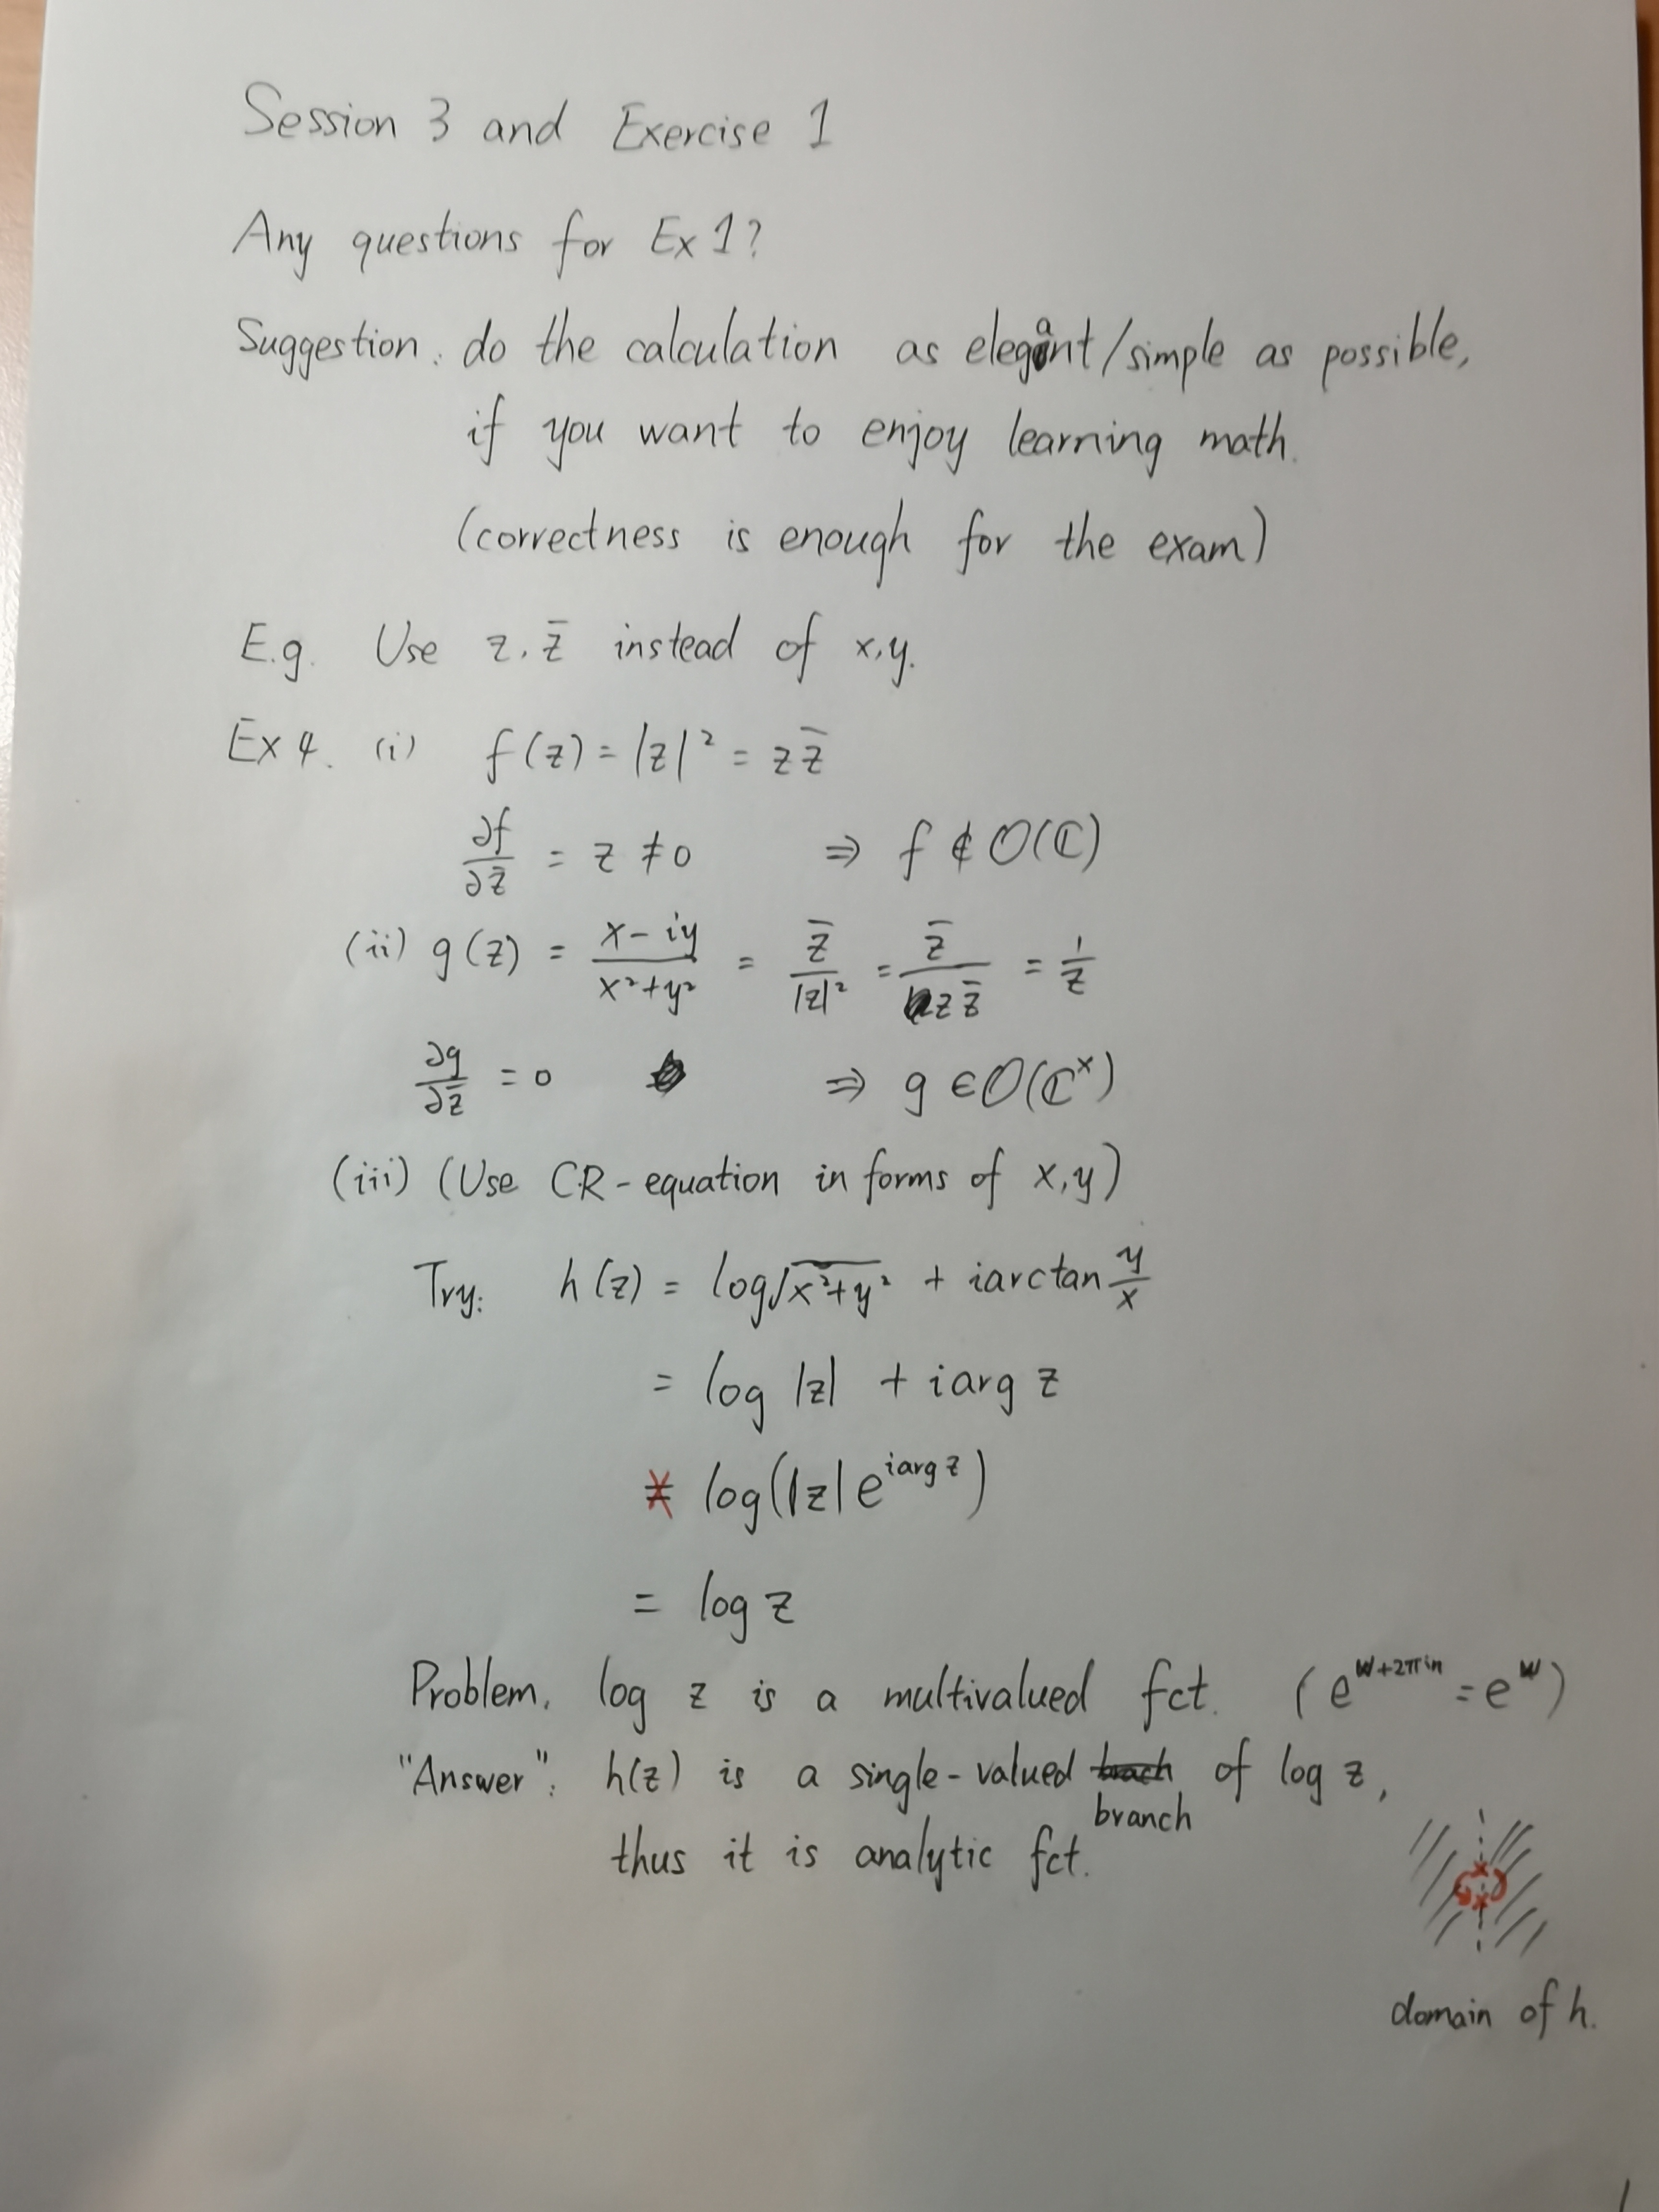 Session 3 and Exercise 1
Any questions for Ex 1?
Suggestion: do the calculation as elegant/simple as possible,
if you want to enjoy learning math.
(correctness is enough for the exam)
E.g. Use z, z̄ instead of x,y.
Ex 4. (i) f(z) = |z|² = z z̄
∂f/∂z̄ = z ≠ 0 ⇒ f ∉ O(ℂ)
(ii) g(z) = (x-iy)/(x²+y²) = z̄/|z|² = z̄/(z z̄) = 1/z
∂g/∂z̄ = 0 ⇒ g ∈ O(ℂ^×)
(iii) (Use CR-equation in forms of x,y)
Try: h(z) = log√(x²+y²) + i arctan y/x
= log |z| + i arg z
≠ log(|z| e^{i arg z})
= log z
Problem. log z is a multivalued fct. (e^{w+2πin} = e^w)
"Answer": h(z) is a single-valued branch of log z,
thus it is analytic fct.
domain of h.